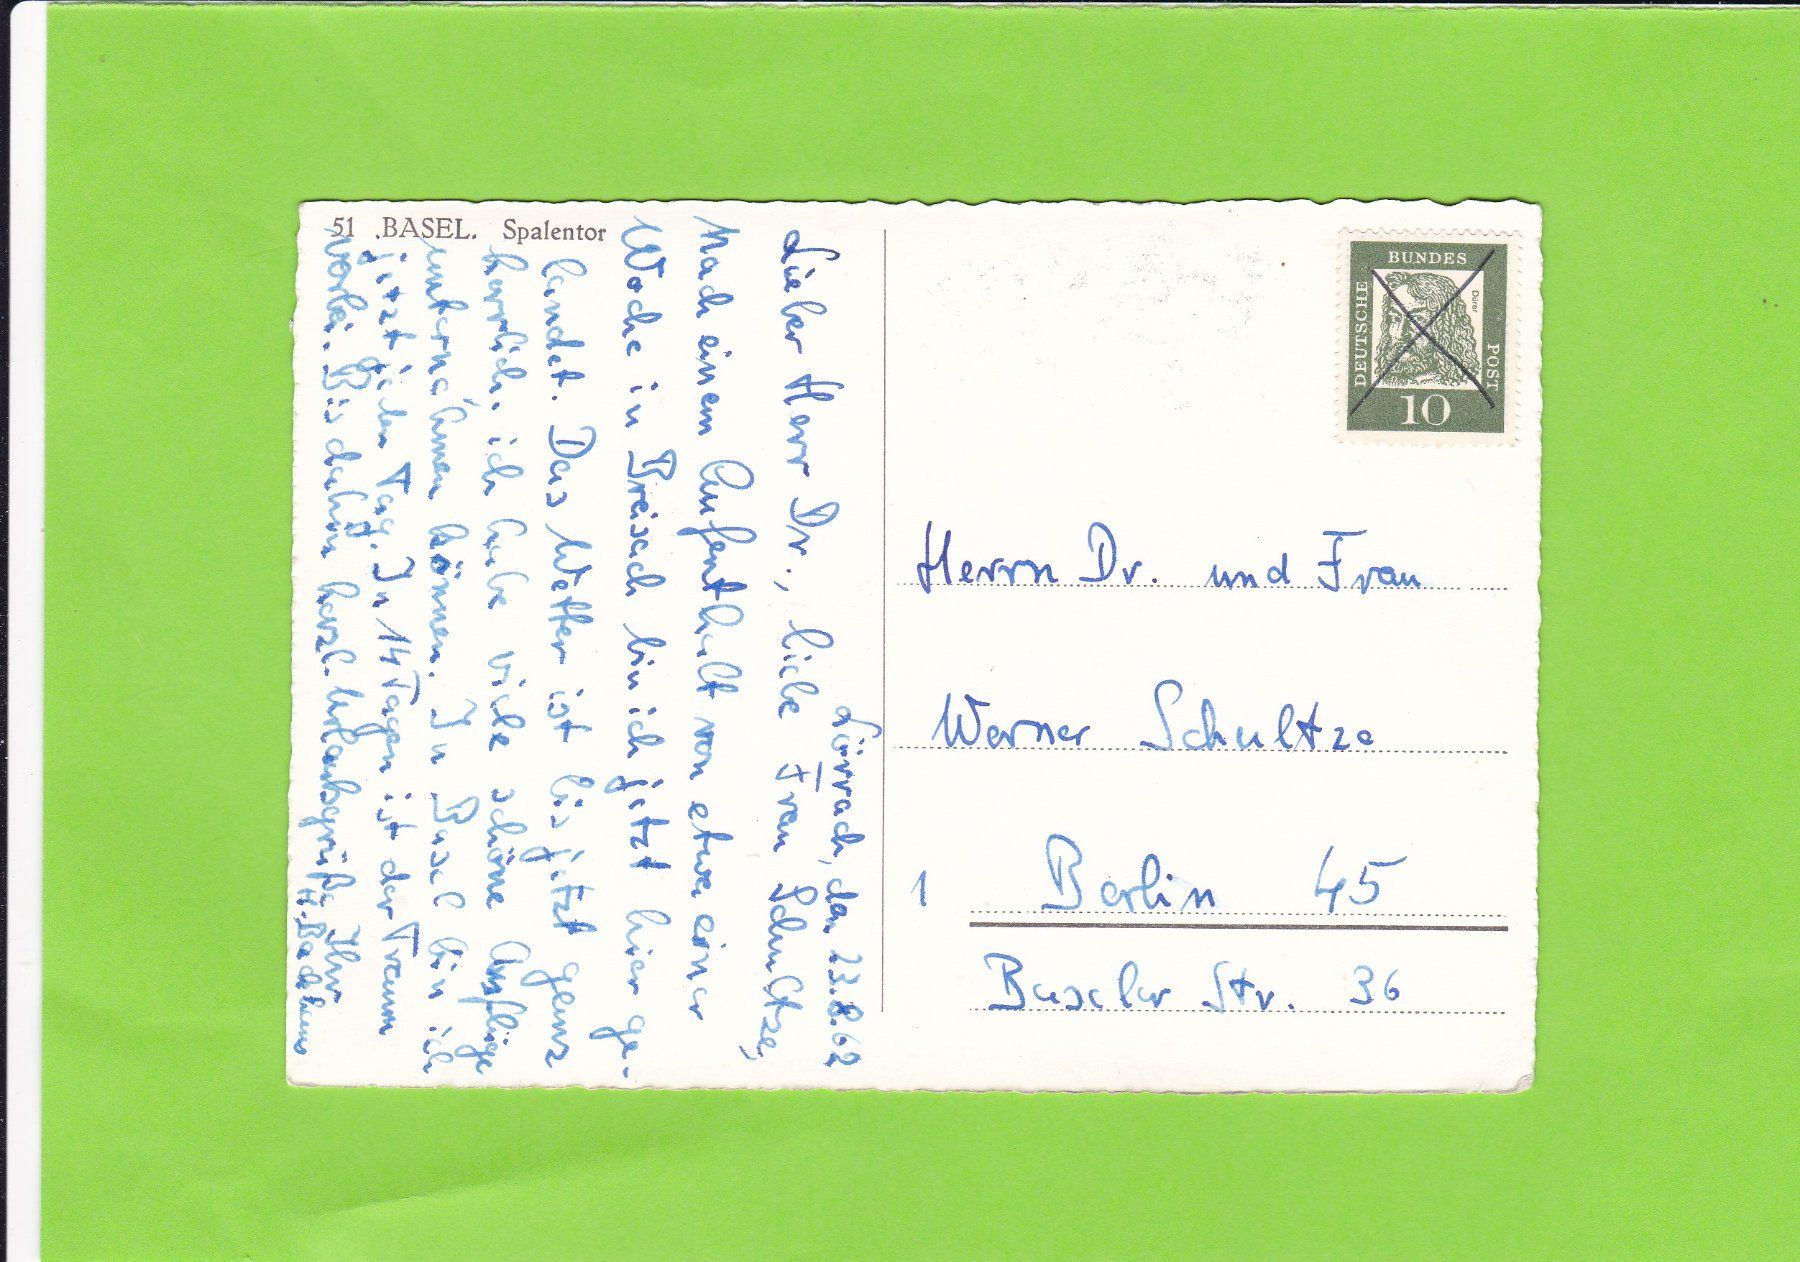 51 .BASEL. Spalentor
Lörrach, den 23.8.62
Lieber Herr Dr., liebe Frau Schultze,
Nach einem Aufenthalt von etwa einer
Woche in Breisach bin ich jetzt hier ge-
landet. Das Wetter ist bis jetzt ganz
herrlich. ich habe viele schöne Ausflüge
unternehmen können. In Basel bin ich
jetzt jeden Tag. In 14 Tagen ist der Traum
vorbei. Bis dahin herzl. Urlaubsgrüße Ihr
H. Backhaus
BUNDES
DEUTSCHE
POST
Dürer
10
Herrn Dr. und Frau
Werner Schultze
1 Berlin 45
Baseler Str. 36